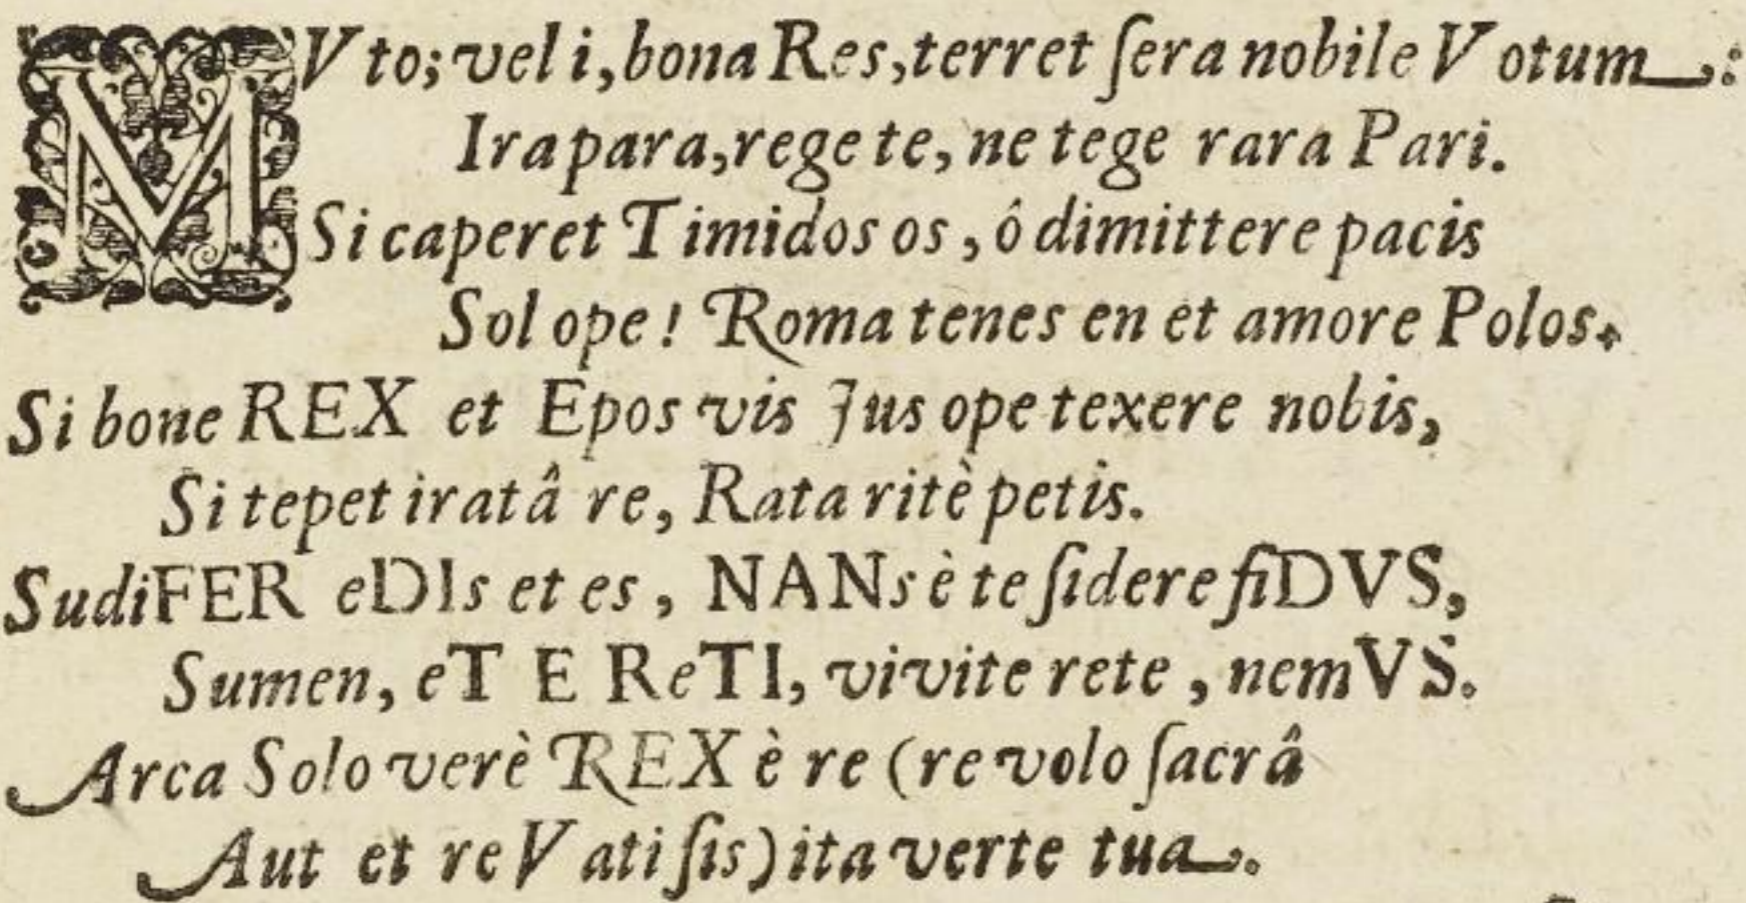 MVto; vel i, bona Res, terret ſera nobile Votum:
Ira para, rege te, ne tege rara Pari.
Si caperet Timidos os, ó dimittere pacis
Sol ope! Roma tenes en et amore Polos.
Si bone REX et Epos vis Jus ope texere nobis,
Si tepet iratâ re, Rata ritè petis.
SudiFER eDIs et es, NANs è te ſidere fiDVS,
Sumen, eT E ReTI, vivite rete, nemVS.
Arca Solo verè REX è re (re volo ſacrâ
Aut et re Vati ſis) ita verte tua.